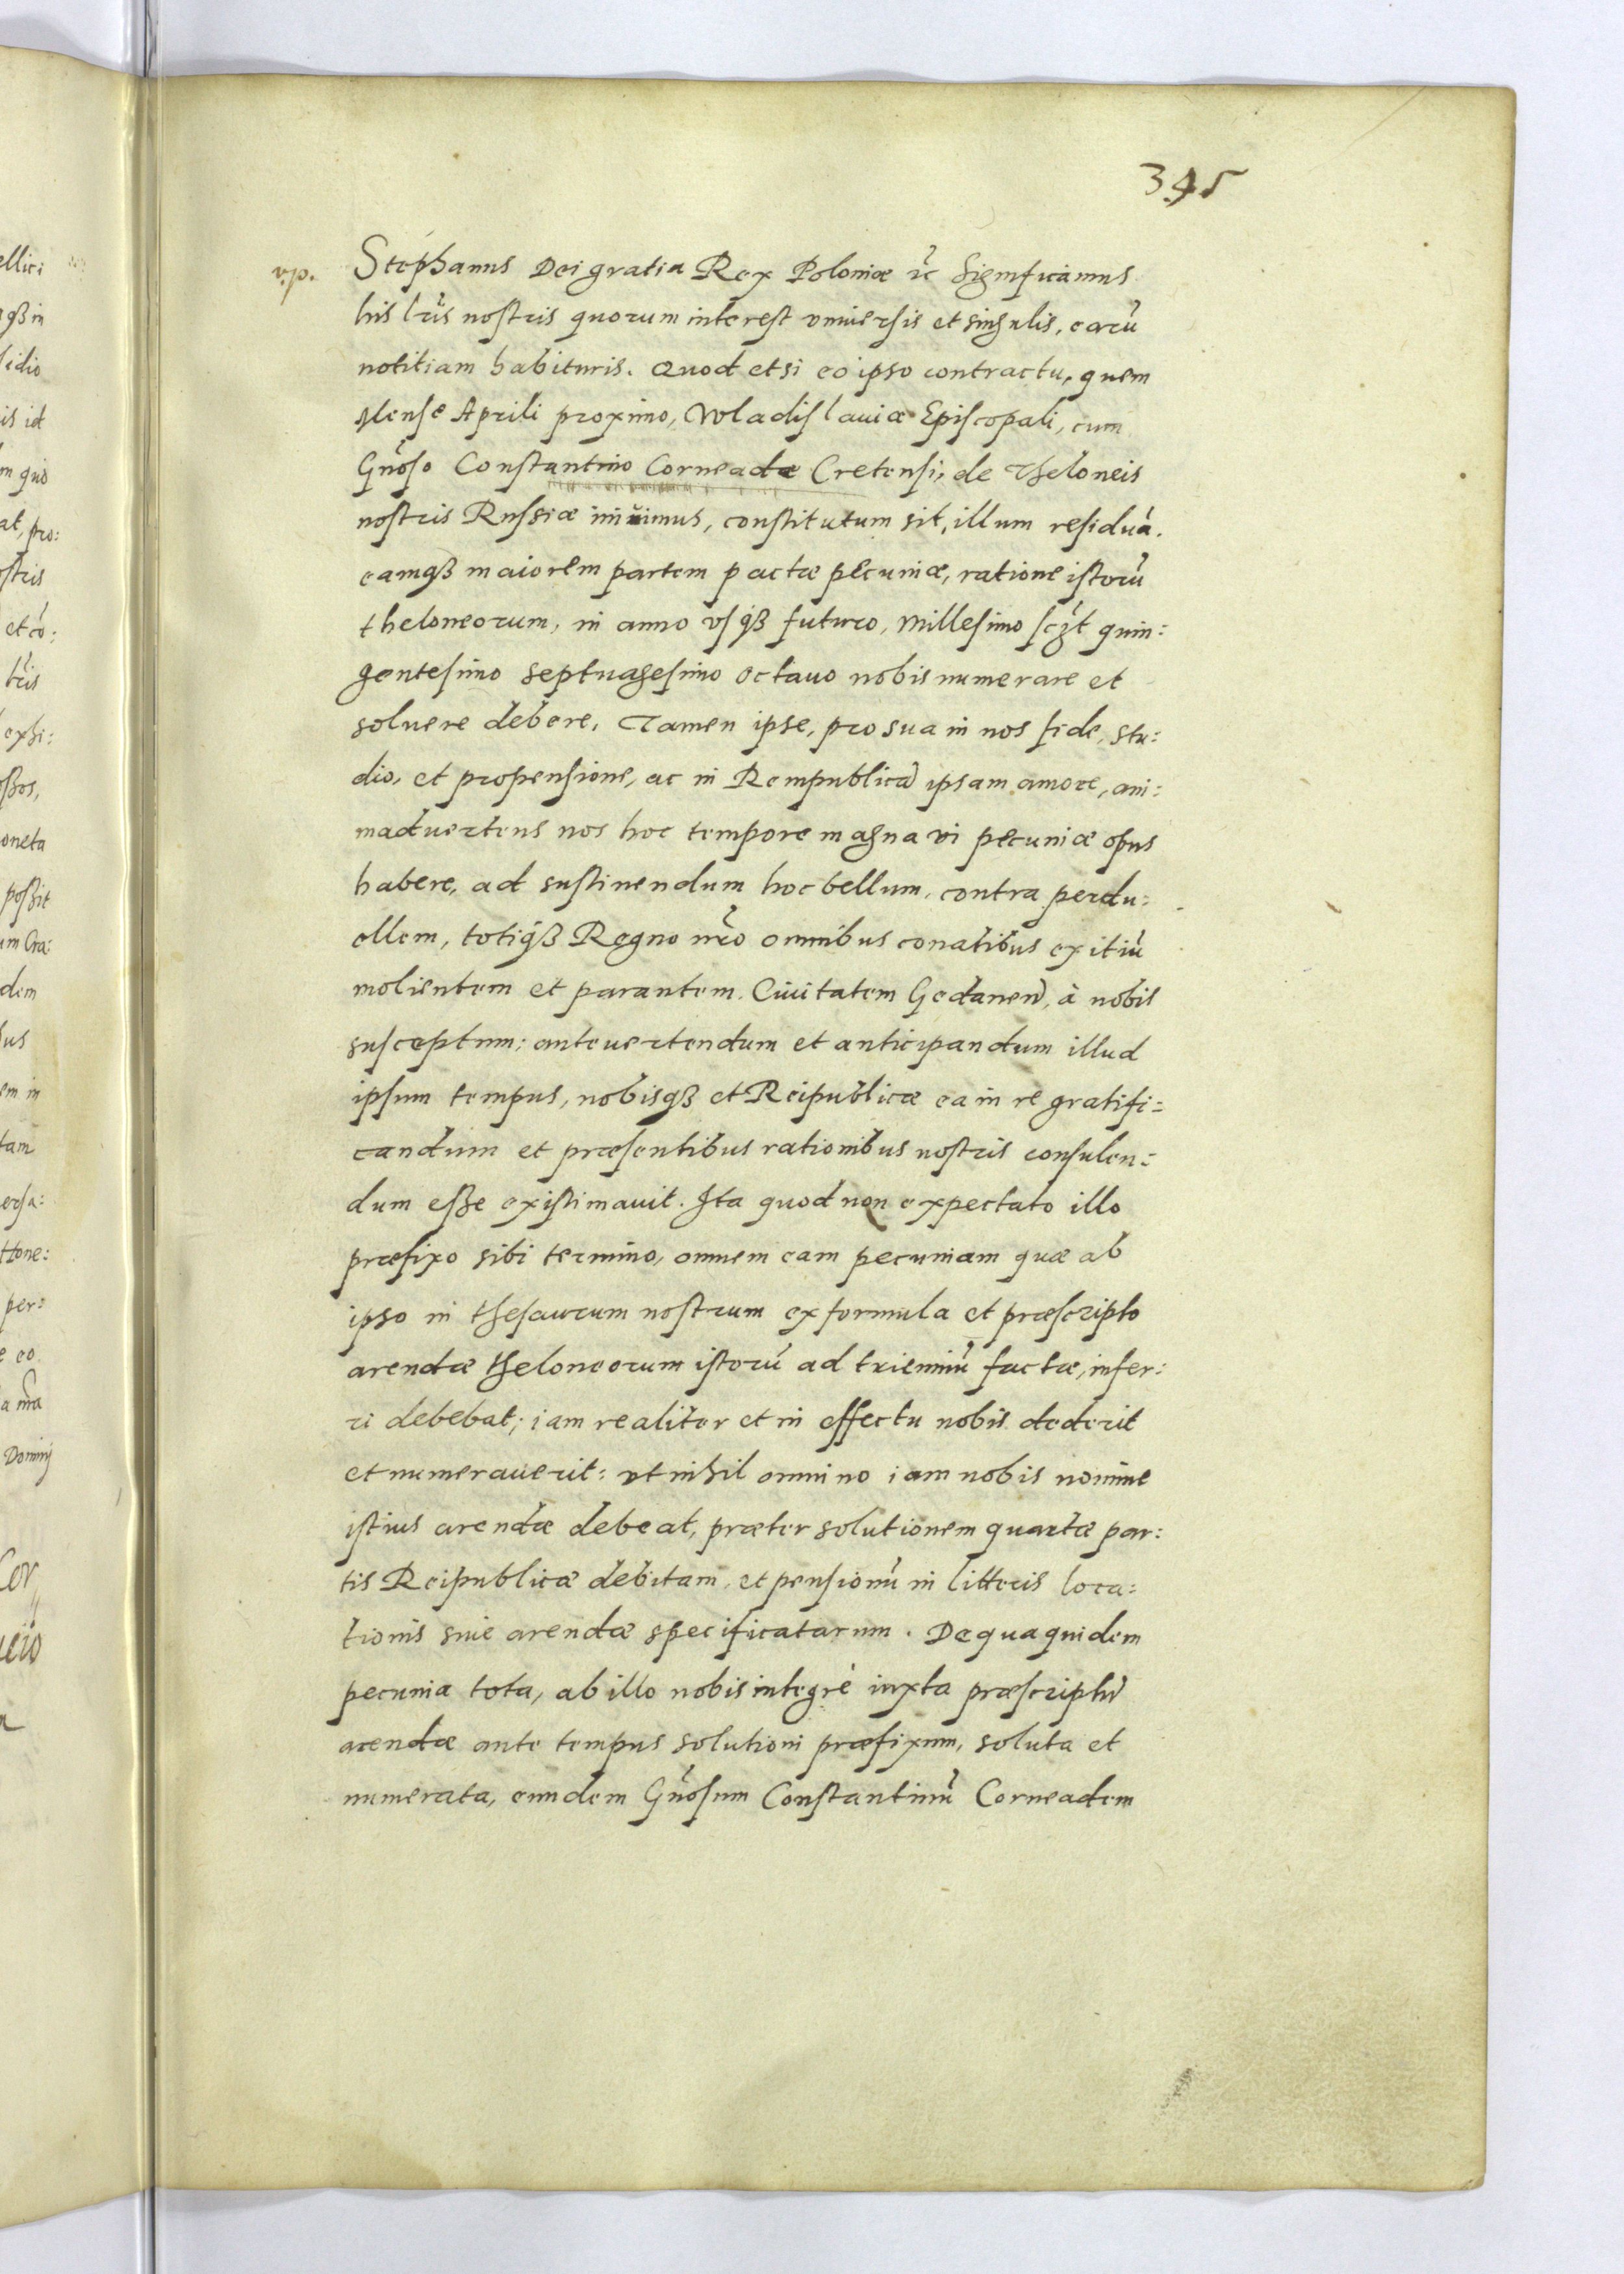 345
v.p.
Stephanus Dei gratia Rex Poloniæ ꝛc̃ Significamus
his lr̃is nostris quorum interest vniuersis et singulis, earũ
notitiam habituris. Quod etsi eo ipso contractu, quem
Mense Aprili proximo, Wladislauiæ Episcopali, cum
Gñoso Constantino Corneadæ Cretensi, de Theloneis
nostris Russiæ iniuimus, constitutum sit, illum residuã
eamqꝫ maiorem partem pactæ pecuniæ, ratione istorũ
theloneorum, in anno vsqꝫ futuro, millesimo sczt quin:
gentesimo septuagesimo octauo nobis numerare et
soluere debere, Tamen ipse, pro sua in nos fide, stu:
dio, et propensione, ac in Rempublicã ipsam amore, ani:
maduertens nos hoc tempore magna vi pecuniæ opus
habere, ad sustinendum hoc bellum, contra perdu:
ellem, totiqꝫ Regno nr̃o omnibus conatibus exitiũ
molientem et parantem Ciuitatem Gedaneñ, à nobis
susceptum: anteuertendum et anticipandum illud
ipsum tempus, nobisqꝫ et Reipublicæ ea in re gratifi:
candum et præsentibus rationibus nostris consulen:
dum esse existimauit. Ita quod non expectato illo
præfixo sibi termino, omnem eam pecuniam quæ ab
ipso in thesaurum nostrum ex formula et præscripto
arendæ theloneorum istorũ ad trienniũ factæ, infer:
ri debebat; iam realiter et in effectu nobis dederit
et numerauerit: vt nihil omnino iam nobis nomine
istius arendæ debeat, præter solutionem quartæ par:
tis Reipublicæ debitam, et pensionũ in litteris loca:
tionis siue arendæ specificatarum. De qua quidem
pecunia tota, ab illo nobis integrè iuxta præscriptũ
arendæ ante tempus solutioni præfixum, soluta et
numerata, eundem Gñosum Constantinũ Corneadem